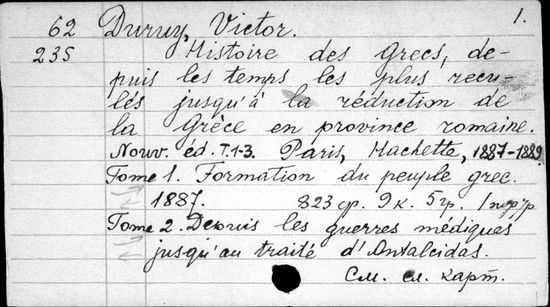 1.
62 Duruy, Victor.
235 Histoire des Grecs, de-
puis les temps les plus recu-
lés jusqu'à la réduction de
la Grèce en province romaine.
Nouv. éd. T. 1-3. Paris, Hachette, 1887-1889
Tome 1. Formation du peuple grec.
1887. 823 стр. 9 к. 5 гр.
Tome 2. Depuis les guerres médiques
jusqu'au traité d'Antalcidas.
См. сл. карт.